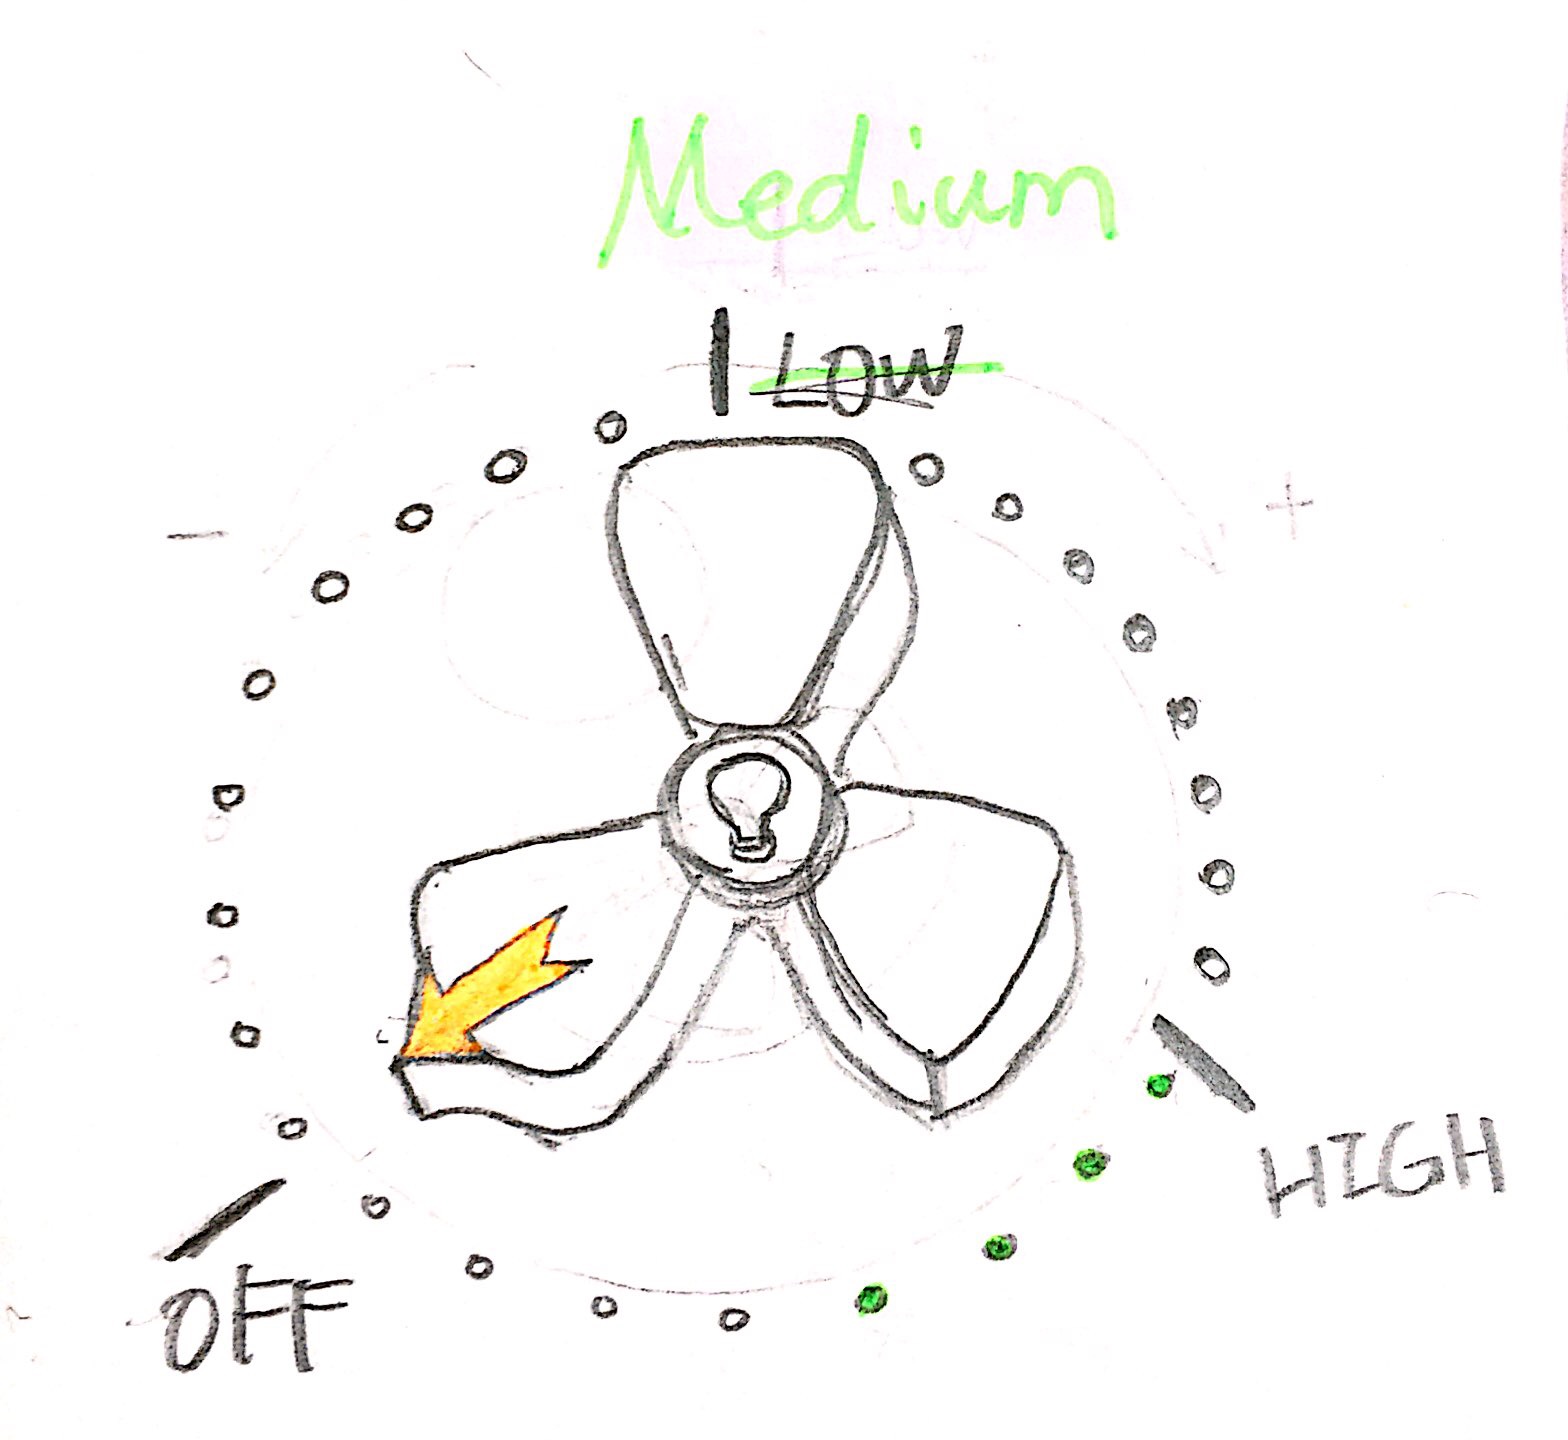 Medium
LOW
-
+
HIGH
OFF